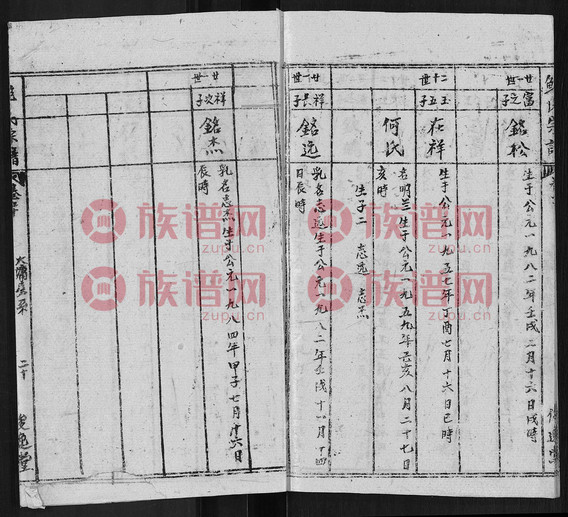 廿一世
富之子
銘松
生于公元一九八二年壬戌二月十六日戌時
二十世
玉五子
在祥
生于公元一九五七年丁酉七月十六日巳時
何氏
名明兰生于公元一九五九年己亥八月二十七日
亥時
生子二 志远 志杰
廿一世
祥長子
銘远
乳名志远生于公元一九八二年壬戌十一月十四
日辰時
廿一世
祥次子
銘杰
乳名志杰生于公元一九八四年甲子七月十六日
辰時
二十
族谱网
zupu.cn
族谱网
zupu.cn
族谱网
zupu.cn
族谱网
zupu.cn
族谱网
zupu.cn
族谱网
zupu.cn